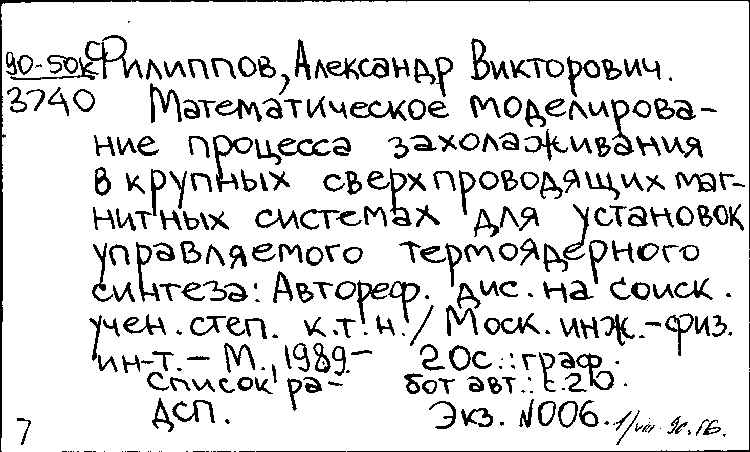 90-50к Филиппов, Александр Викторович.
3740 Математическое моделирова-
ние процесса захолаживания
в крупных сверхпроводящих маг-
нитных системах для установок
управляемого термоядерного
синтеза: Автореф. дис. на соиск.
учен. степ. к.т.н. / Моск. инж.-физ.
ин-т. – М., 1989. – 20с.: граф.
Список ра- бот авт.: с.20.
ДСП. Экз. N006.
7